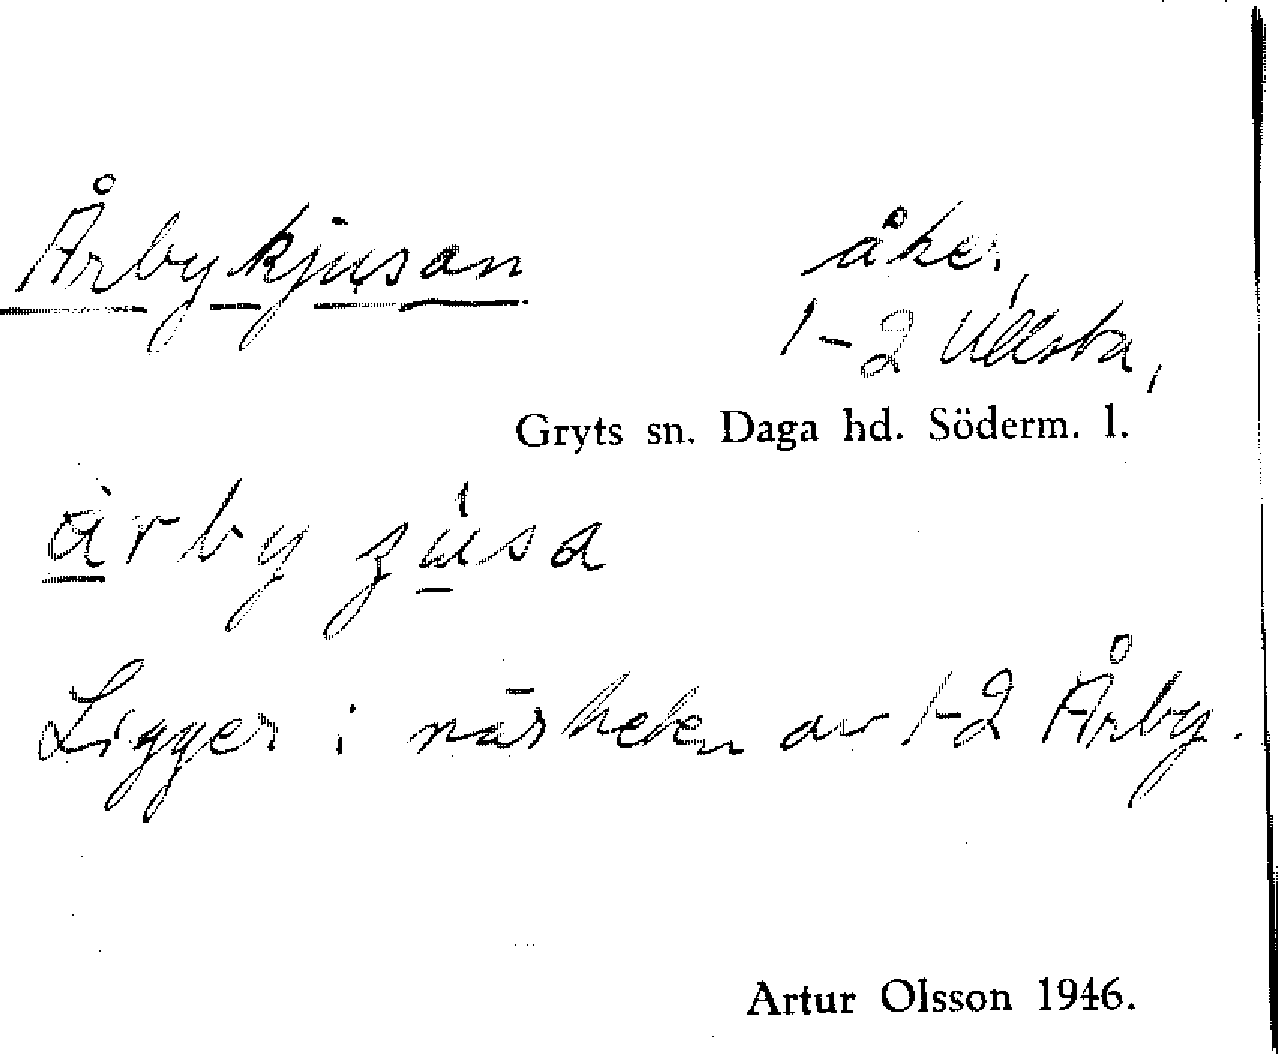 Årbykjusan åker,
1-2 Ullsta,
Gryts sn. Daga hd. Söderm. l.
årby
Ligger i närheten av 1-2 Årby.
Artur Olsson 1946.